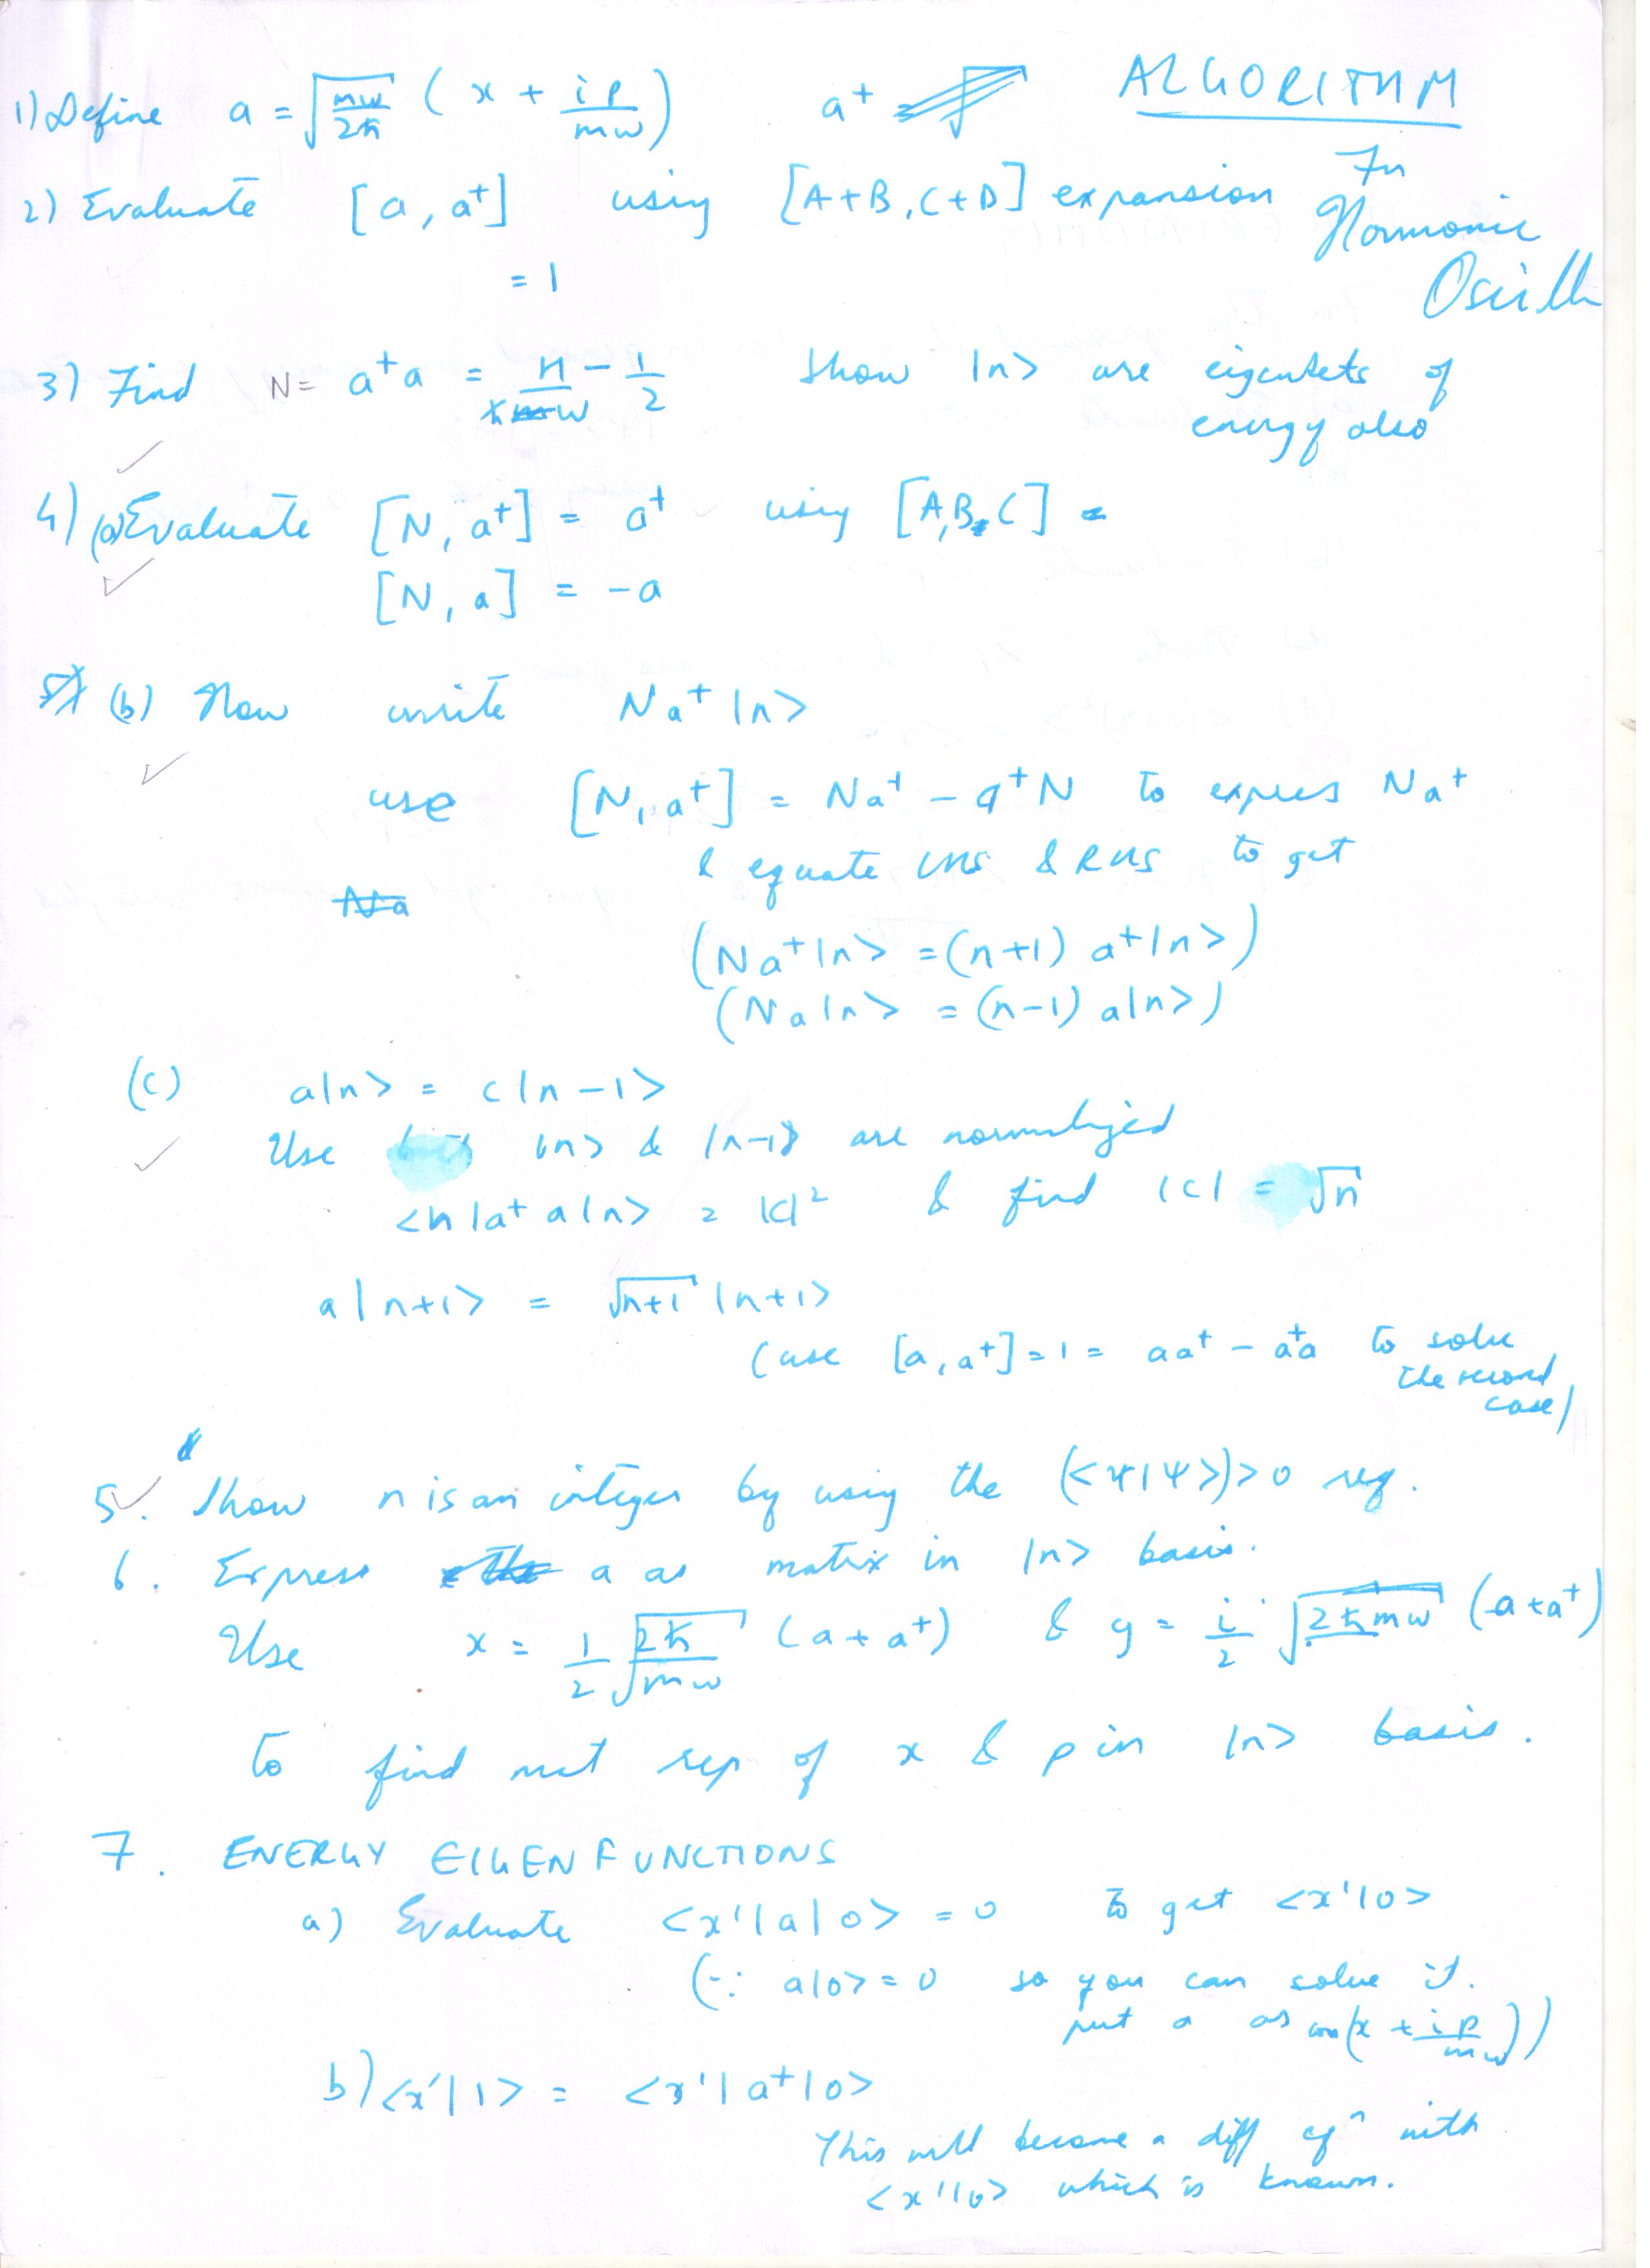 ALGORITHM
1) Define a = √(mω/2ħ) (x + ip/mω) a†
For
2) Evaluate [a, a†] using [A+B, C+D] expansion
Harmonic
= 1
Oscill
3) Find N = a†a = H/ħω - 1/2 Show |n> are eigenkets of
energy also
4) (a) Evaluate [N, a†] = a† using [A,B,C] =
[N, a] = -a
(b) Now write Na†|n>
use [N, a†] = Na† - a†N to expres Na†
& equate LHS & RHS to get
Na
(Na†|n> = (n+1) a†|n>)
(Na|n> = (n-1) a|n>)
(c) a|n> = c|n-1>
Use |n> & |n-1> are normalized
<n|a†a|n> = |c|² & find |c| = √n
a|n+1> = √n+1 |n+1>
(use [a, a†] = 1 = aa† - a†a to solve
the second
case)
5. Show n is an integer by using the (<Ψ|Ψ>) > 0 req.
6. Express a as matrix in |n> basis.
Use x = 1/2 √(2ħ/mω) (a + a†) & y = i/2 √(2ħmω) (-a + a†)
to find mat rep of x & p in |n> basis.
7. ENERGY EIGENFUNCTIONS
a) Evaluate <x'|a|0> = 0 to get <x'|0>
(∵ a|0> = 0 so you can solve it.
put a as (x + ip/mω))
b) <x'|1> = <x'|a†|0>
This will become a diff eqⁿ with
<x'|0> which is known.